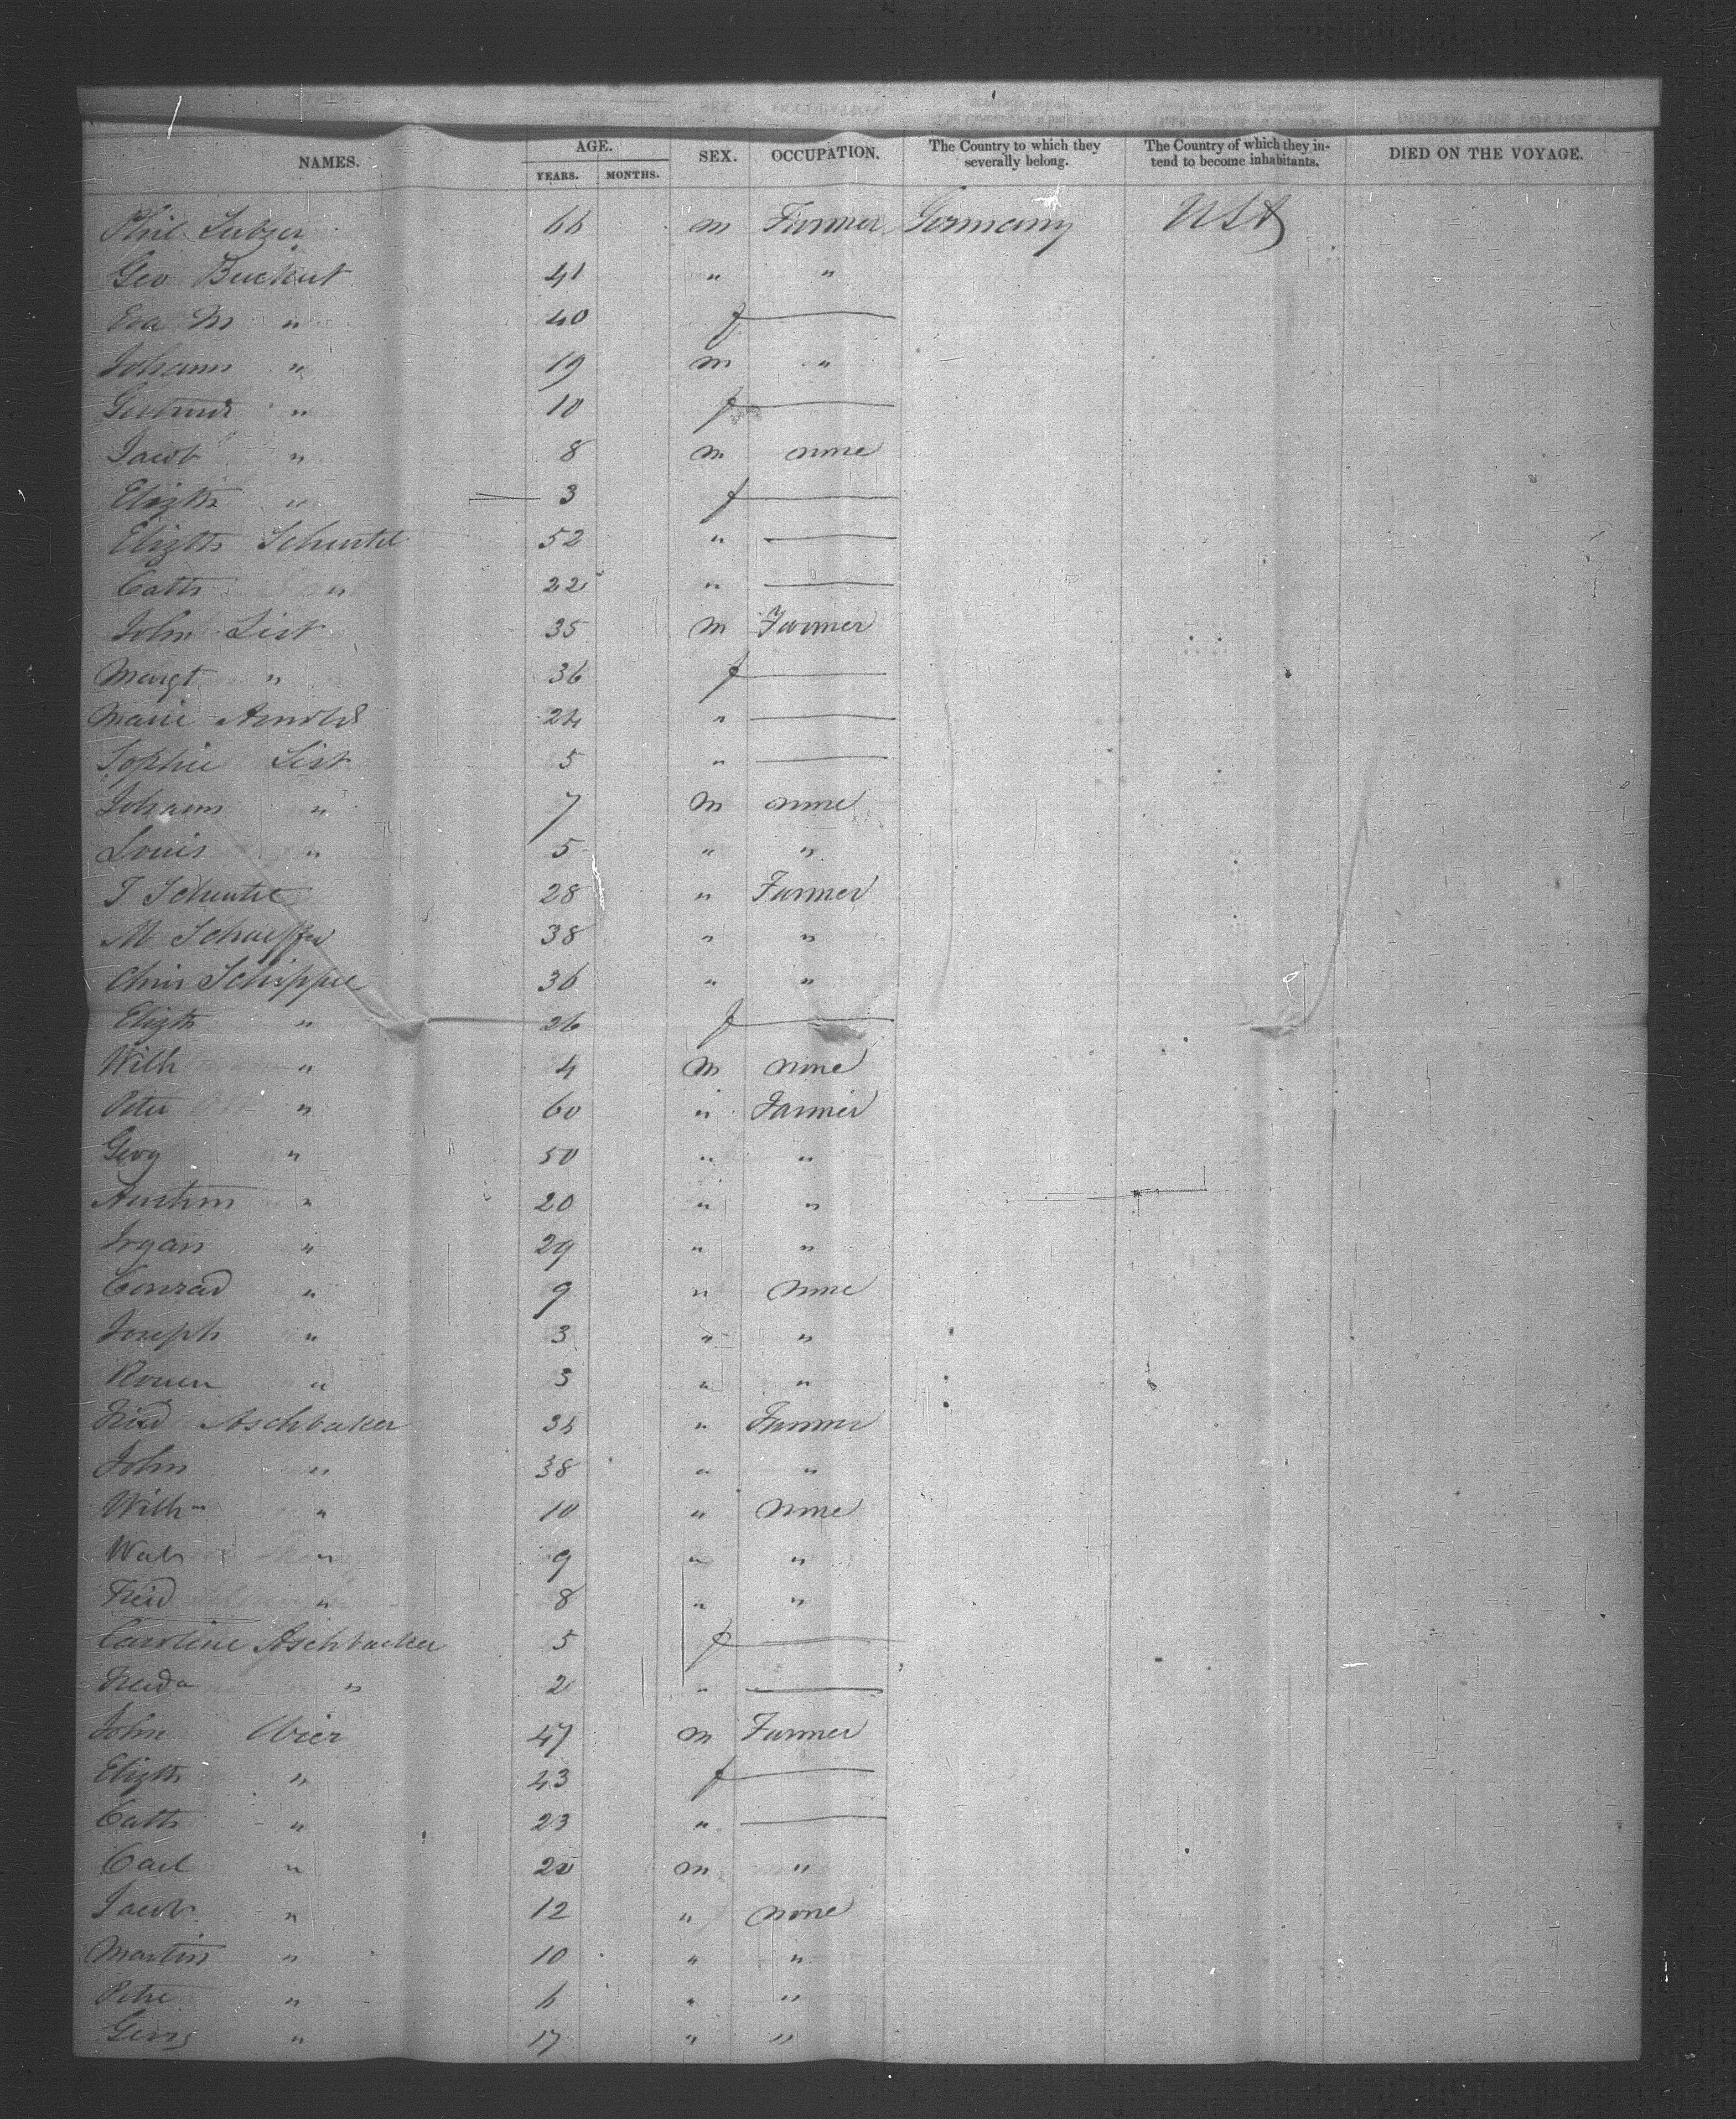 NAMES. AGE. SEX. OCCUPATION. The Country to which they severally belong. The Country of which they intend to become inhabitants. DIED ON THE VOYAGE.
YEARS. MONTHS.
Phil 66 m Farmer Germany USA
Geo Buckert 41 " "
Eva M " 40 f —
Johann " 19 m "
Gertrud " 10 f —
Jacob " 8 m none
Elizth " 3 f —
Elizth Schentel 52 " —
Cath " 22 " —
John List 35 m Farmer
Margt " 36 f —
Marie Arnold 24 " —
Sophie List 5 " —
Johann " 7 m none
Louis " 5 " "
J Schentel 28 " Farmer
M Schaeffer 38 " "
Chris Schippel 36 " "
Elizth " 26 f —
Wilh " 4 m none
Peter " 60 " Farmer
Georg " 50 " "
" 20 " "
" 29 " "
Conrad " 9 " none
Joseph " 3 " "
" 3 " "
Fried Aschbaker 34 " Farmer
John " 38 " "
Wilhm " 10 " none
" 9 " "
Fried " 8 " "
Caroline Aschbacker 5 f —
Frieda " 2 " —
John 47 m Farmer
Elizth " 43 f —
Cath " 23 " —
Carl " 20 m "
Jacob " 12 " none
Martin " 10 " "
Peter " 6 " "
Georg " 17 " "